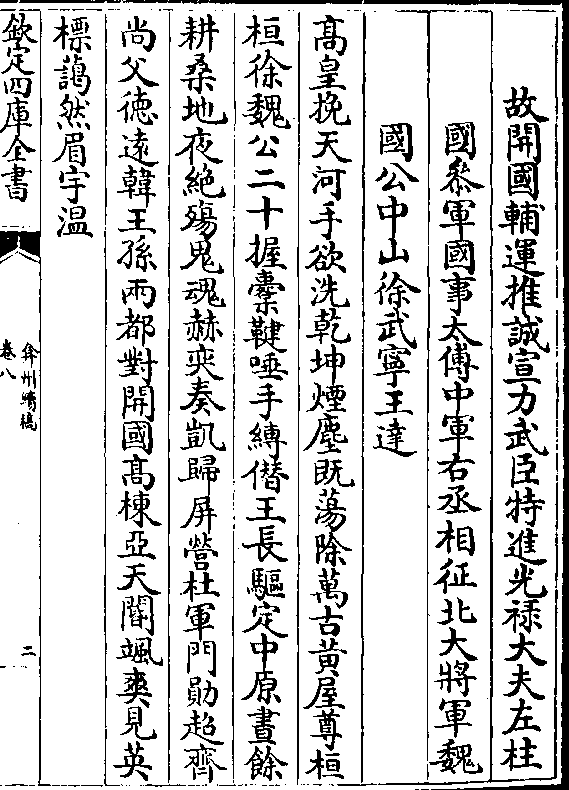 故開國輔運推誠宣力武臣特進光祿大夫左柱
國叅軍國事太傅中軍右丞相征北大將軍魏
國公中山徐武寧王達
髙皇挽天河手欲洗乾坤煙塵既蕩除萬古黃屋尊桓
桓徐魏公二十握櫜鞬唾手縛僭王長驅定中原晝餘
耕桑地夜絶殤鬼魂赫奕奏凱歸屏營杜軍門勛超齊
尚父德逺韓王孫兩都對開國髙棟亞天閽颯爽見英
標藹然眉宇溫
欽定四庫全書
弇州續稿
卷八
二